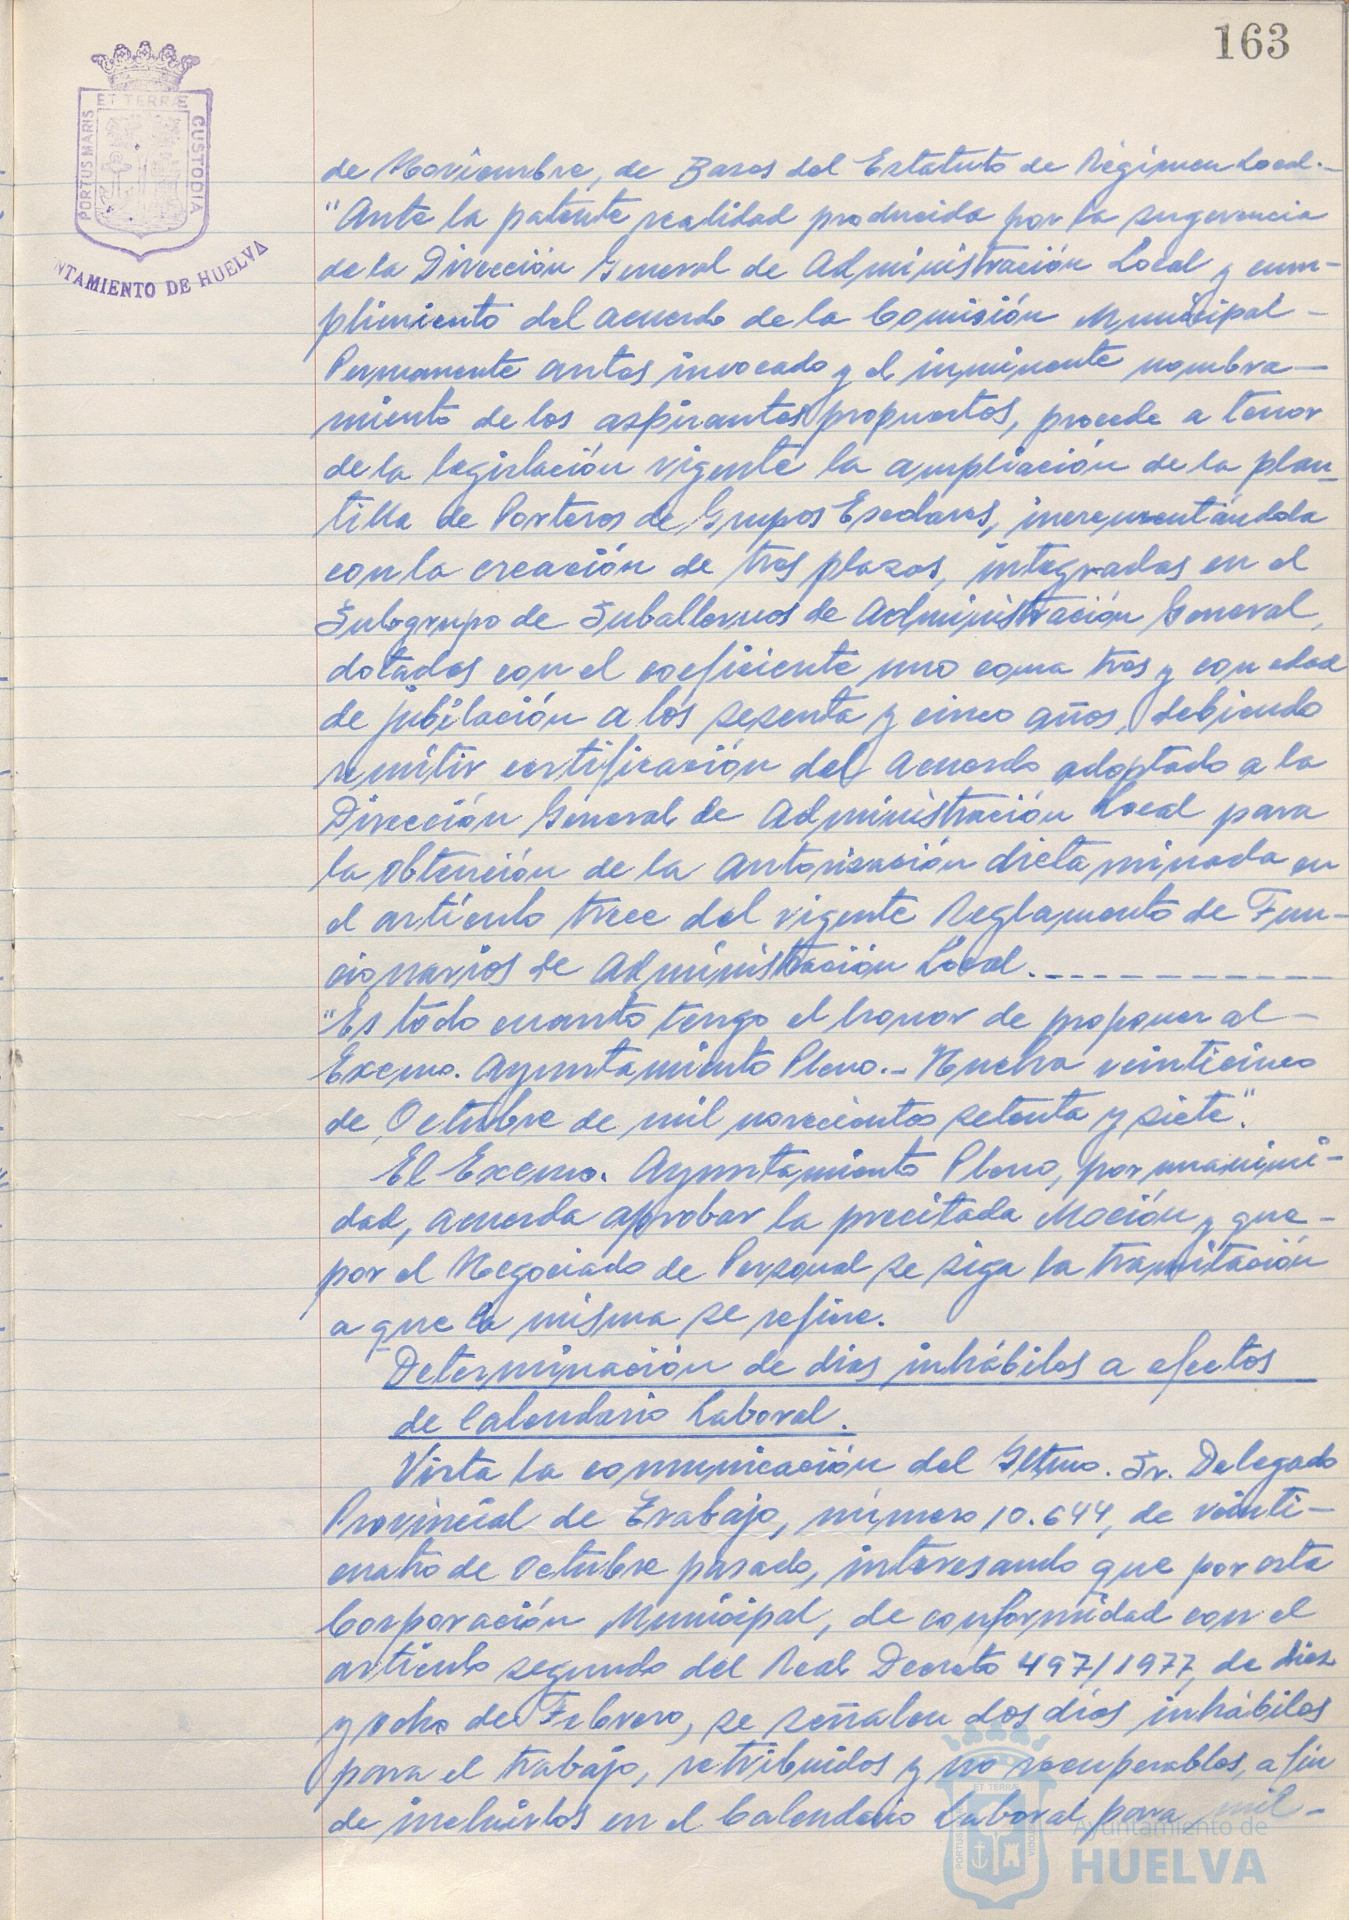 163
PORTUS MARIS ET TERRÆ CUSTODIA
NTAMIENTO DE HUELVA
de Noviembre, de Bases del Estatuto de Régimen Local.-
"Ante la patente realidad producida por la sugerencia
de la Dirección General de Administración Local y cum-
plimiento del acuerdo de la Comisión Municipal -
Permanente antes invocado y el inminente nombra-
miento de los aspirantes propuestos, procede a tenor
de la legislación vigente la ampliación de la plan-
tilla de Porteros de Grupos Escolares, incrementándola
con la creación de tres plazas, integradas en el
Subgrupo de Subalternos de Administración General,
dotadas con el coeficiente uno coma tres y con edad
de jubilación a los sesenta y cinco años, debiendo
remitir certificación del acuerdo adoptado a la
Dirección General de Administración Local para
la obtención de la autorización dictaminada en
el artículo trece del vigente Reglamento de Fun-
cionarios de Administración Local.-----------
"Es todo cuanto tengo el honor de proponer al -
Excmo. Ayuntamiento Pleno.- Huelva veinticinco
de Octubre de mil novecientos setenta y siete".
El Excmo. Ayuntamiento Pleno, por unanimi-
dad, acuerda aprobar la precitada Moción y que -
por el Negociado de Personal se siga la tramitación
a que la misma se refiere.
Determinación de dias inhábiles a efectos
de Calendario Laboral.
Vista la comunicación del Iltmo. Sr. Delegado
Provincial de Trabajo, número 10.644, de veinti-
cuatro de Octubre pasado, interesando que por esta
Corporación Municipal, de conformidad con el
artículo segundo del Real Decreto 497/1977, de diez
y ocho de Febrero, se señalen dos días inhábiles
para el trabajo, retribuidos y no recuperables, a fin
de incluirlos en el Calendario Laboral para mil-
Ayuntamiento de
HUELVA